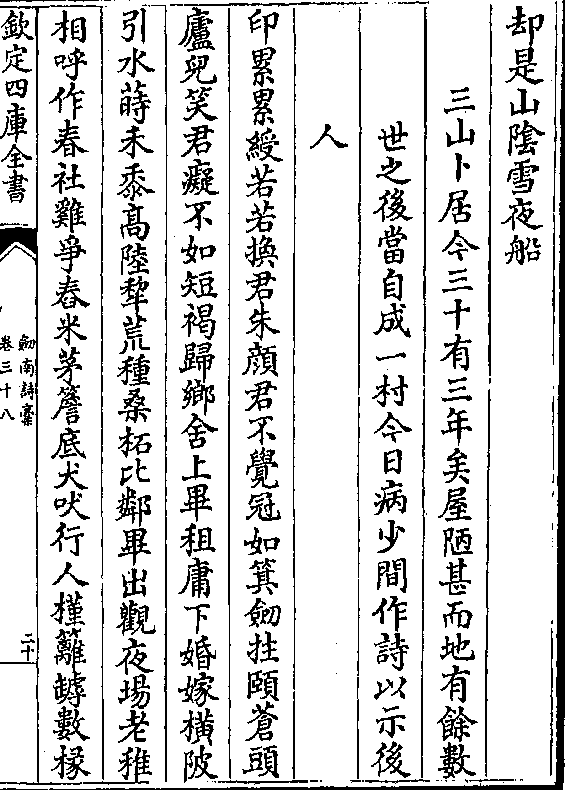 却是山陰雪夜船
三山卜居今三十有三年矣屋陋甚而地有餘數
世之後當自成一村今日病少間作詩以示後
人
印累累綬若若換君朱顔君不覺冠如箕劒拄頤蒼頭
廬兒笑君癡不如短褐歸鄉舍上畢租庸下婚嫁橫陂
引水蒔禾黍髙陸犂荒種桑柘比鄰畢出觀夜場老稚
相呼作春社雞爭舂米茅簷底犬吠行人槿籬罅數椽
欽定四庫全書
劒南詩藁
卷三十八
二十